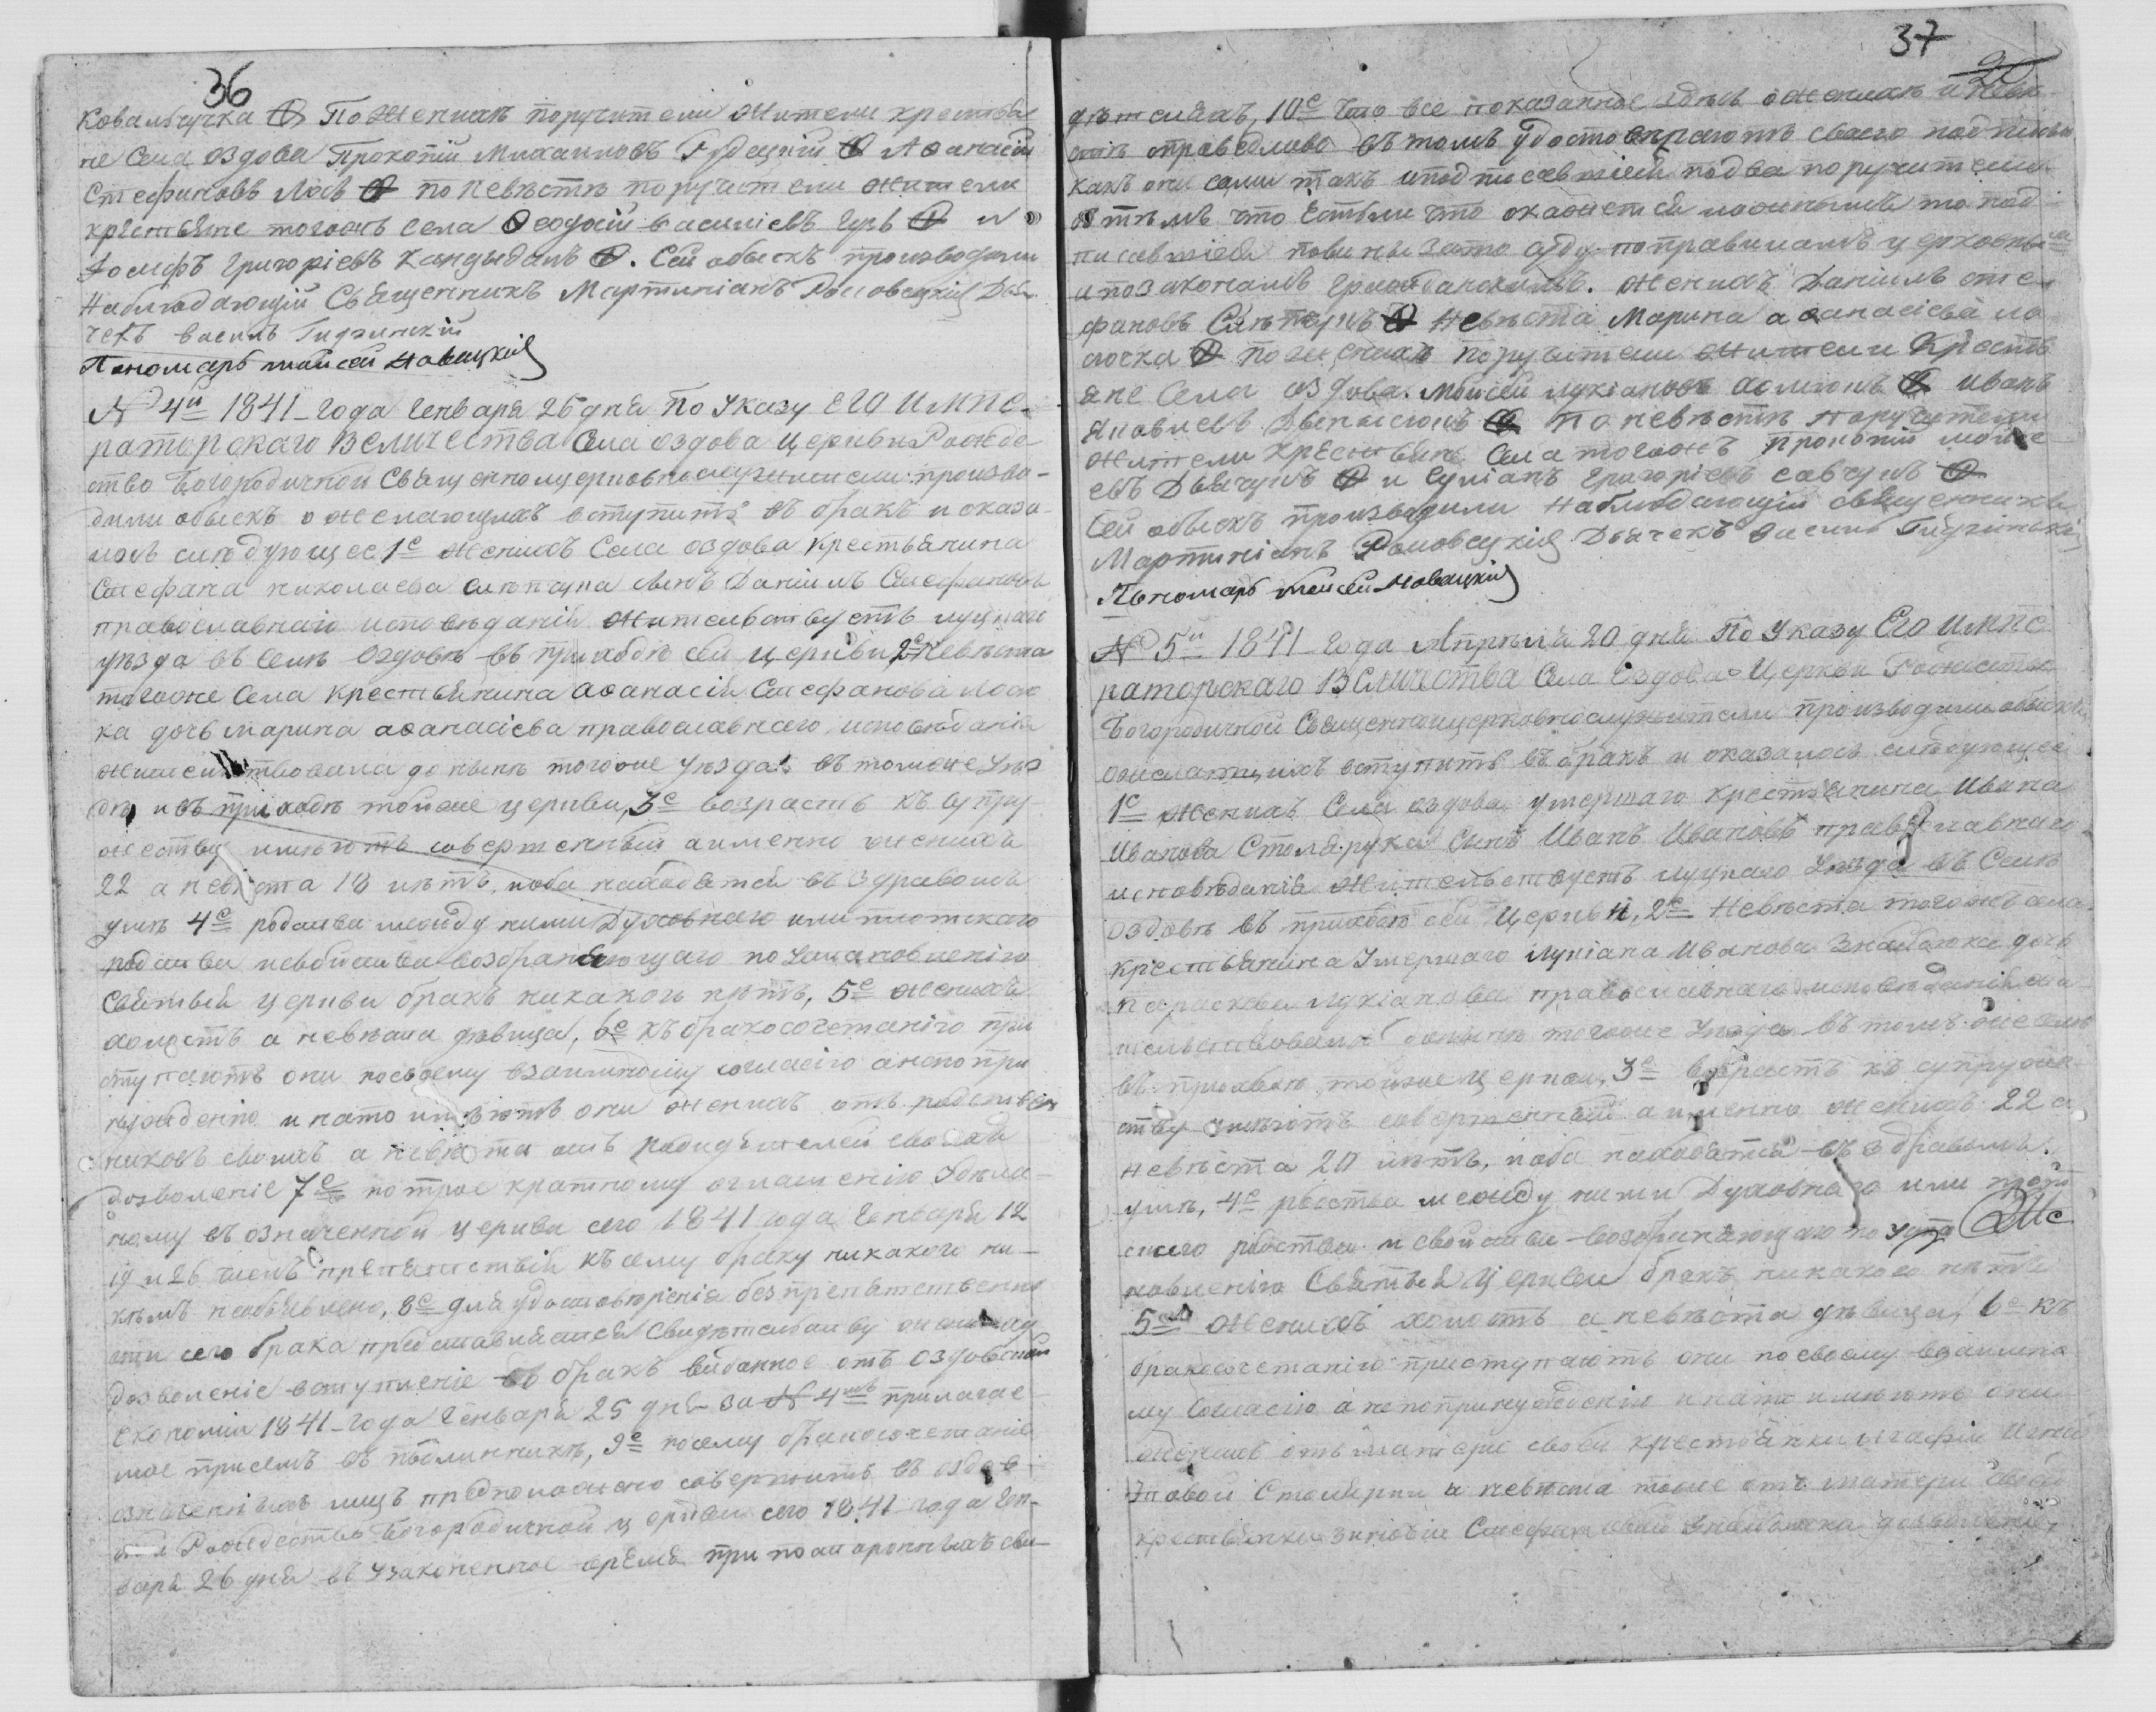 36
Ковальчучка По женихѣ поручители жители крестья
не Села Оздова Прокопій Михаиловъ Гудецкій Аѳанасій
Стефановъ Лось по невѣстѣ поручители жители
крестьяне тогожъ села Ѳеодосій Василіевъ и
Іосифъ Григоріевъ Кандыбанъ. Сей обыскъ производили
Наблюдающій Священникъ Мартиніанъ Дья
чекъ Василь Гидзинскій
Пономарь Мойсей Новацкій
№ 4й 1841 года Генваря 26 дня По Указу ЕГО ИМПЕ-
раторскаго Величества Села Оздова Церкви Рожде
ство Богородичной Священноцерковнослужители произво-
дили обыскъ о желающихъ вступить въ бракъ и оказа
лось слѣдующее 1е женихъ Села Оздова Крестьянина
Стефана Николаева Слѣпцуна сынъ Даніилъ Стефановъ
православнаго исповѣданія жительствуетъ луцкаго
уѣзда въ Селѣ Оздовѣ въ приходѣ сей церкви 2е невѣста
тогоже Села крестьянина Аѳанасія Стефанова Лосю
ка дочь Марина Аѳанасіева православнаго исповѣданія
жительствовала до нынѣ тогоже уѣзда въ томже
и въ приходѣ тойже церкви, 3е возрастъ къ супру-
жеству имѣютъ совершенный а именно женихъ
22 а невѣста 18 лѣтъ, и оба находятся въ здравомъ
умѣ 4е родства между ними Духовнаго или плотскаго
родства и свойства возбраняющаго по Установленію
Святыя церкви бракъ никакого нѣтъ, 5е женихъ
холостъ а невѣста дѣвица, 6е къ бракосочетанію при
ступаютъ они по своему взаимному согласію а не по при
нужденію и на то имѣютъ они женихъ отъ родствен
никовъ своихъ а невѣста отъ родителей своихъ
дозволеніе 7е по трое кратному оглашенію Здѣла-
ному въ означенной церкви сего 1841 года Генваря 12
19 и 26 числъ препятствій къ сему браку никакого ни-
кѣмъ необъявлено, 8е для удостовѣренія безпрепятственно
сти сего брака представляются Свидѣтельству
дозволеніе вступленіе въ бракъ выданное отъ Оздовской
економіи 1841 года Генваря 25 дня за № 4мъ прилагае
мое присемъ въ подлинникѣ, 9е посему бракосочетаніе
означенныхъ лицъ предположено совершить въ Оздов
ской Рождество Богородичной церкви сего 1841 года Ген-
варя 26 дня въ узаконенное время при постороннихъ сви-
37
дѣтеляхъ, 10е Что все показанное здѣсь о женихѣ и невѣ
стѣ справедливо въ томъ удостовѣряютъ своего подписью
какъ они сами такъ и подписавшіеся по два поручителя
съ тѣмъ что Естьли что окажется ложнымъ то под-
писавшіеся повинны зато суду по правиламъ церковнымъ
и по законамъ гражданскимъ. Женихъ Даніилъ Сте
фановъ Невѣста Марина Аѳанасіева Ло
сючка по женихѣ поручители жители Кресть
яне Села Оздова. Мойсей Лукіановъ Иванъ
по невѣстѣ поручители
жители крестьяне Села тогожъ Прокопій Мойсе
евъ Дьячукъ и Григоріевъ Савчукъ
Сей обыскъ производили Наблюдающій Священникъ
Мартиніанъ Дьячекъ Василь Гидзинскій
Пономарь Мойсей Новацкій
№ 5й 1841 года Апрѣля 20 дня По Указу Его ИМПЕ
раторскаго Величества Села Оздова Церкви Рождество
Богородичной Священноцерковнослужители производили обыскъ
о желающихъ вступить въ бракъ и оказалось слѣдующее
1е женихъ Села Оздова умершаго крестьянина Ивана
Иванова Столярука Сынъ Иванъ Ивановъ православнаго
исповѣданія Жительствуетъ луцкаго Уѣзда въ Селѣ
Оздовѣ въ приходѣ сей Церкви, 2е Невѣста тогожъ села
крестьянина Умершаго Лукіана Иванова дочь
Параскева Лукіанова православнаго исповѣданія жи
тельствовала донынѣ тогоже Уѣзда въ томъ же селѣ
въ приходѣ тойже церкви, 3е возрастъ къ супруже
ству имѣютъ совершенный а именно женихъ 22 а
невѣста 20 лѣтъ, и оба находятся въ здравомъ
умѣ, 4е родства между ними Духовнаго или плот
скаго родства и свойства возбраняющаго по уста
новленію Святыя Церкви бракъ никакого нѣтъ
5е женихъ холостъ а невѣста дѣвица, 6е къ
бракосочетанію приступаютъ они по своему взаимно
му согласію а не по принужденію и на то имѣютъ они
женихъ отъ матери своей крестьянки Агафіи
Столярки а невѣста тоже отъ матери своей
крестьянки Зиновіи Стефановой дозволеніе,